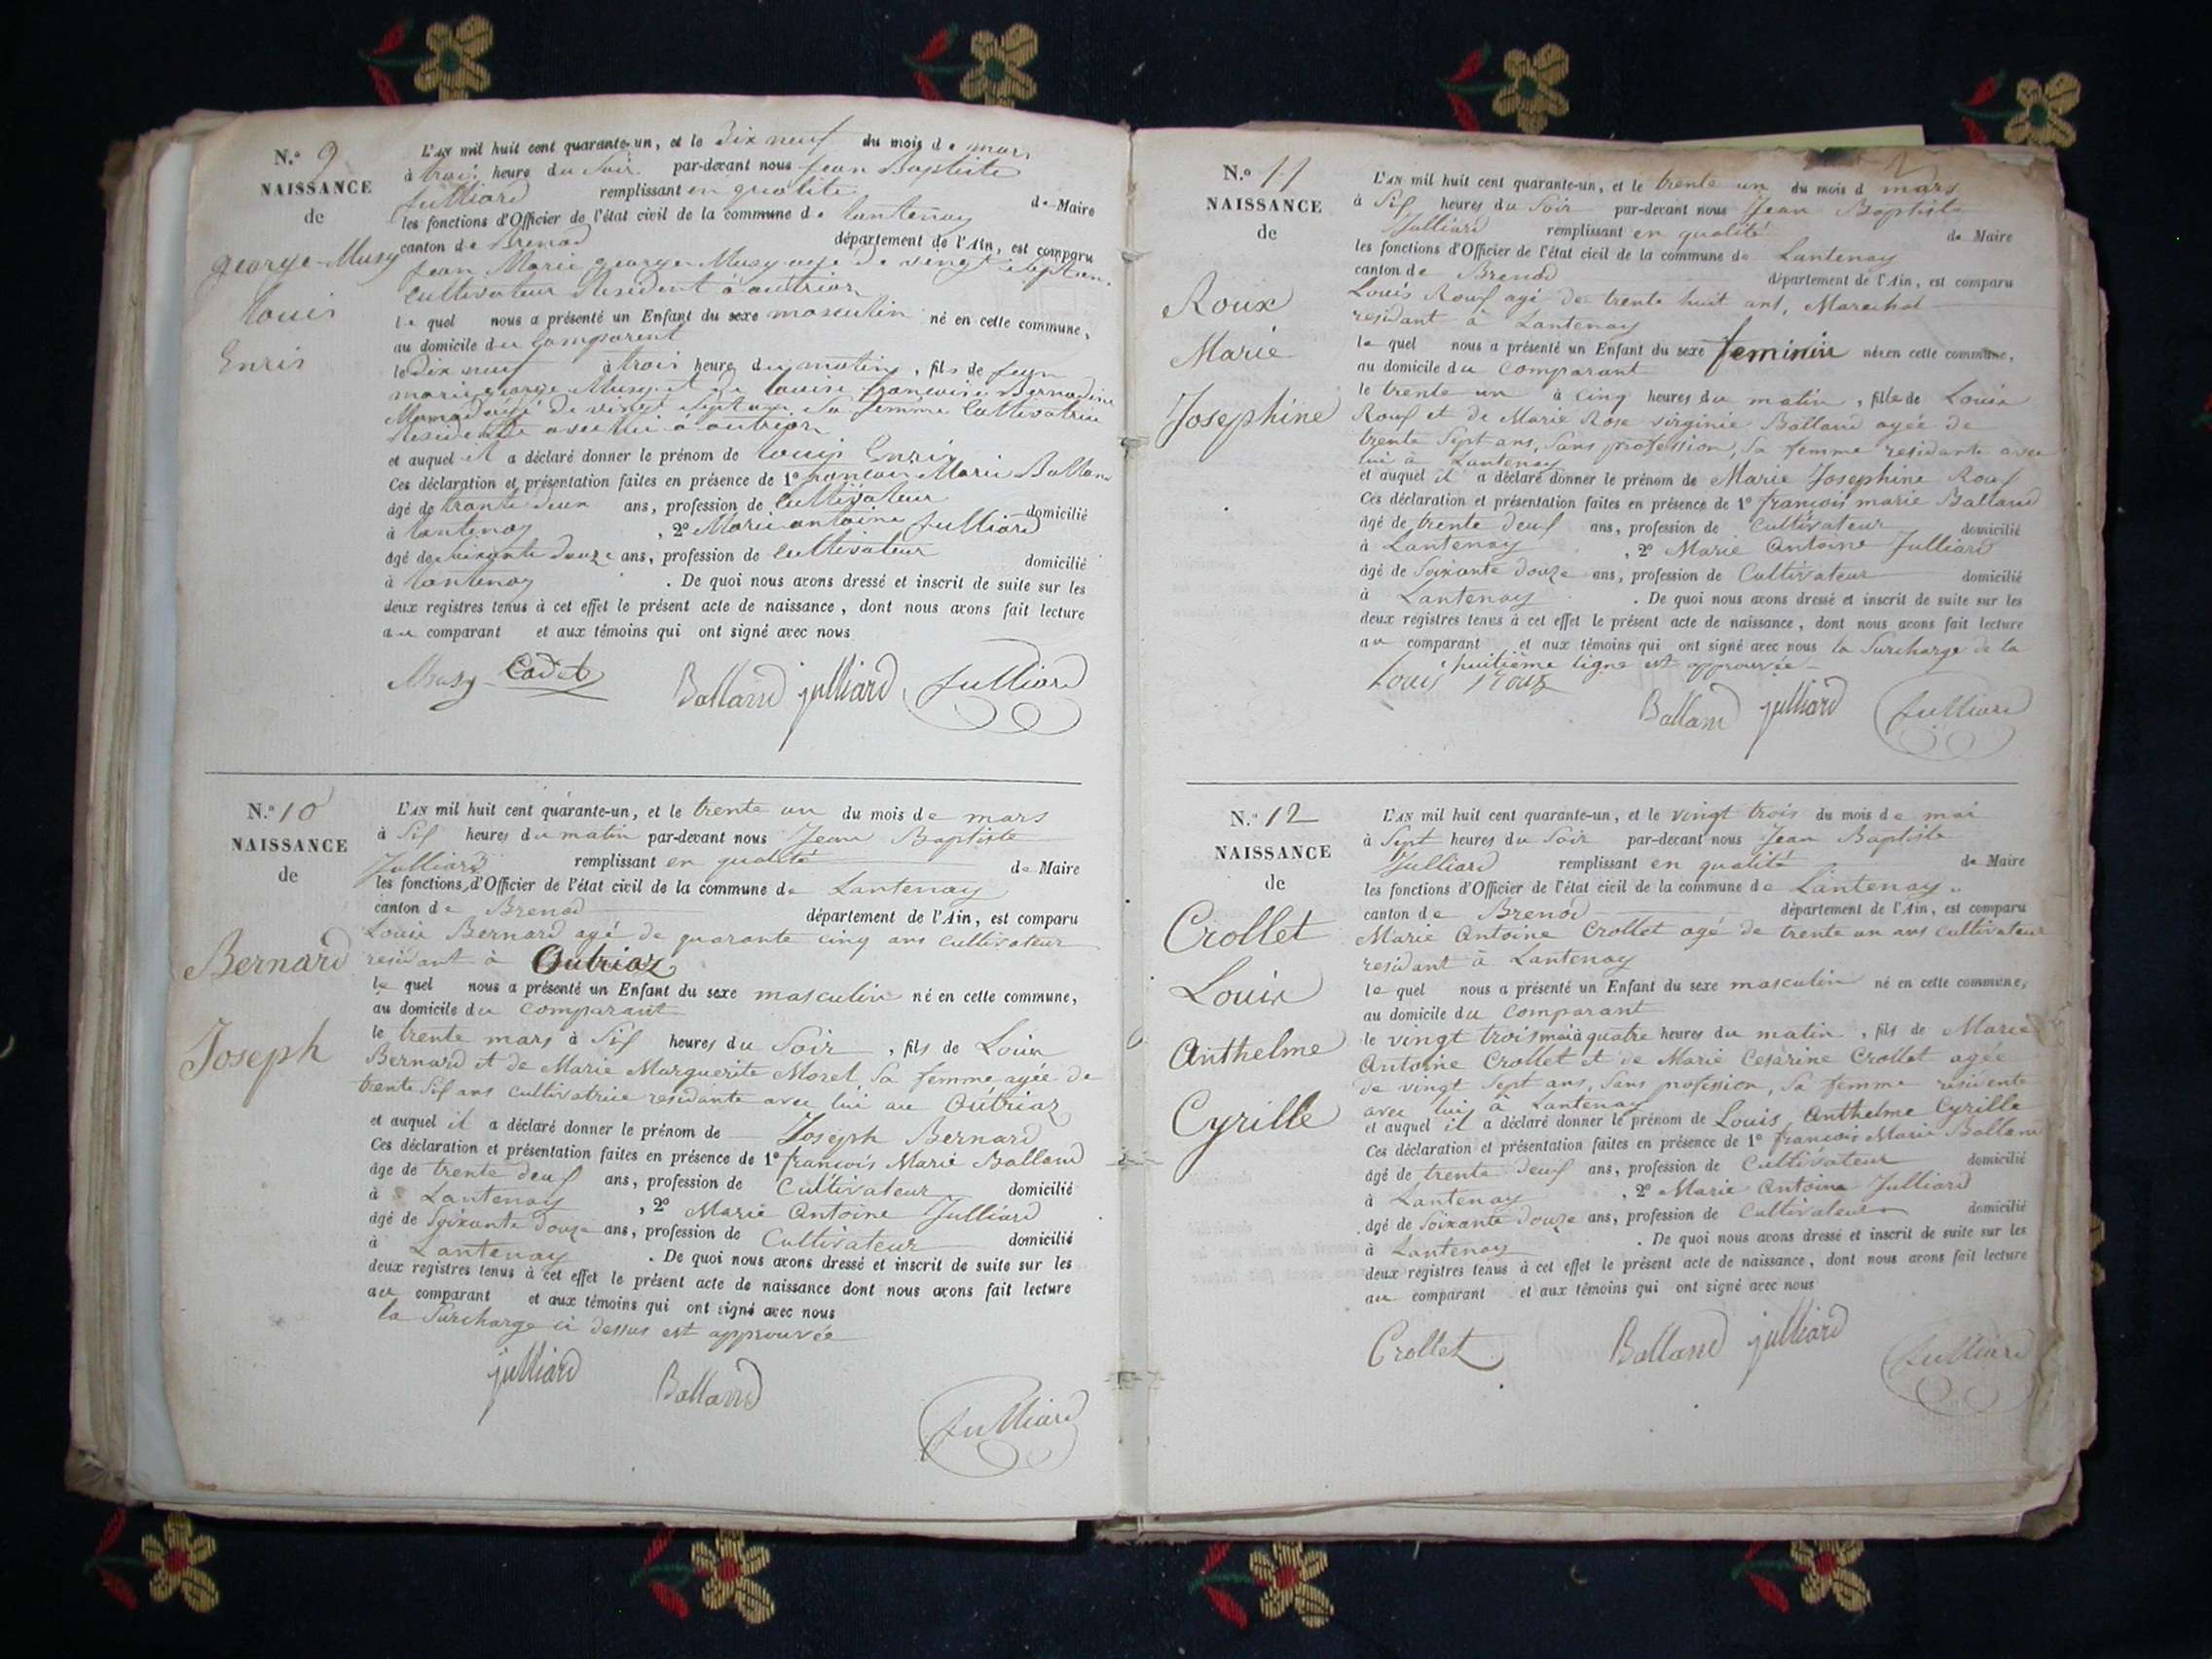 N.º 9
NAISSANCE
de
george-Musy
Louis
Enris
L'AN mil huit cent quarante-un, et le Dix neuf du mois de mars
à trois heure du Soir par-devant nous jean Baptiste
Julliard remplissant en qualité de Maire
les fonctions d'Officier de l'état civil de la commune de lantenay
canton de Brenod département de l'Ain, est comparu
jean Marie george-Musy age de vingt sept an
Cultivateur Résident à autrior
le quel nous a présenté un Enfant du sexe masculin né en cette commune,
au domicile du Comparent
le Dix neuf à trois heure du matin, fils de jean
marie george Musy et de louise francoise Bernadine
âgé de vingt sept an Sa femme Cultivatrice
Résidente avec lui à autrior
et auquel il a déclaré donner le prénom de louis Enris
Ces déclaration et présentation faites en présence de 1º francois Marie Balland
âgé de trante deux ans, profession de Cultivateur domicilié
à lantenay, 2º Marie antoine Julliard
âgé de soixante douze ans, profession de Cultivateur domicilié
à lantenay. De quoi nous avons dressé et inscrit de suite sur les
deux registres tenus à cet effet le présent acte de naissance, dont nous avons fait lecture
au comparant et aux témoins qui ont signé avec nous
Musy Cadet Balland julliard Julliard
N.º 10
NAISSANCE
de
Bernard
Joseph
L'AN mil huit cent quarante-un, et le trente un du mois de mars
à Six heures du matin par-devant nous Jean Baptiste
Julliard remplissant en qualité de Maire
les fonctions d'Officier de l'état civil de la commune de Lantenay
canton de Brenod département de l'Ain, est comparu
Louis Bernard agé de quarante cinq ans cultivateur
residant à Outriaz
le quel nous a présenté un Enfant du sexe masculin né en cette commune,
au domicile du Comparant
le trente mars à Six heures du Soir, fils de Louis
Bernard et de Marie Marguerite Morel Sa femme agée de
trente Six ans cultivatrice residante avec lui au Outriaz
et auquel il a déclaré donner le prénom de Joseph Bernard
Ces déclaration et présentation faites en présence de 1º francois Marie Balland
âgé de trente deux ans, profession de Cultivateur domicilié
à Lantenay, 2º Marie Antoine Julliard
âgé de Soixante douze ans, profession de Cultivateur domicilié
à Lantenay. De quoi nous avons dressé et inscrit de suite sur les
deux registres tenus à cet effet le présent acte de naissance dont nous avons fait lecture
au comparant et aux témoins qui ont signé avec nous
la Surcharge ci dessus est approuvée
julliard Balland Julliard
N.º 11
NAISSANCE
de
Roux
Marie
Josephine
L'AN mil huit cent quarante-un, et le trente un du mois d mars
à Six heures du Soir par-devant nous Jean Baptiste
Julliard remplissant en qualité de Maire
les fonctions d'Officier de l'état civil de la commune de Lantenay
canton de Brenod département de l'Ain, est comparu
Louis Roux agé de trente huit ans, Marechal
residant à Lantenay
le quel nous a présenté un Enfant du sexe feminin né en cette commune,
au domicile du Comparant
le trente un à cinq heures du matin, fille de Louis
Roux et de Marie Rose virginie Balland agée de
trente Sept ans, Sans profession, Sa femme residante avec
lui à Lantenay
et auquel il a déclaré donner le prénom de Marie Josephine Roux
Ces déclaration et présentation faites en présence de 1º francois marie Balland
âgé de trente deux ans, profession de Cultivateur domicilié
à Lantenay, 2º Marie Antoine Julliard
âgé de Soixante douze ans, profession de Cultivateur domicilié
à Lantenay. De quoi nous avons dressé et inscrit de suite sur les
deux registres tenus à cet effet le présent acte de naissance, dont nous avons fait lecture
au comparant et aux témoins qui ont signé avec nous la Surcharge de la
huitième ligne est approuvée
Louis Roux Balland julliard Julliard
N.º 12
NAISSANCE
de
Crollet
Louis
Anthelme
Cyrille
L'AN mil huit cent quarante-un, et le vingt trois du mois de mai
à Sept heures du Soir par-devant nous Jean Baptiste
Julliard remplissant en qualité de Maire
les fonctions d'Officier de l'état civil de la commune de Lantenay
canton de Brenod département de l'Ain, est comparu
Marie Antoine Crollet agé de trente un ans cultivateur
residant à Lantenay
le quel nous a présenté un Enfant du sexe masculin né en cette commune,
au domicile du Comparant
le vingt trois mai à quatre heures du matin, fils de Marie
Antoine Crollet et de Marie Cesarine Crollet agée
de vingt Sept ans, Sans profession, Sa femme residente
avec lui, à Lantenay
et auquel il a déclaré donner le prénom de Louis Anthelme Cyrille
Ces déclaration et présentation faites en présence de 1º francois Marie Balland
âgé de trente deux ans, profession de Cultivateur domicilié
à Lantenay, 2º Marie Antoine Julliard
âgé de Soixante douze ans, profession de Cultivateur domicilié
à Lantenay. De quoi nous avons dressé et inscrit de suite sur les
deux registres tenus à cet effet le présent acte de naissance, dont nous avons fait lecture
au comparant et aux témoins qui ont signé avec nous
Crollet Balland julliard Julliard